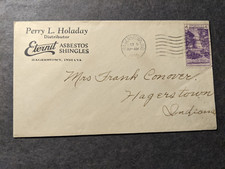 Perry L. Holaday
Distributor
Eternit ASBESTOS
SHINGLES
Mrs Frank Conover,
Hagerstown
Indiana